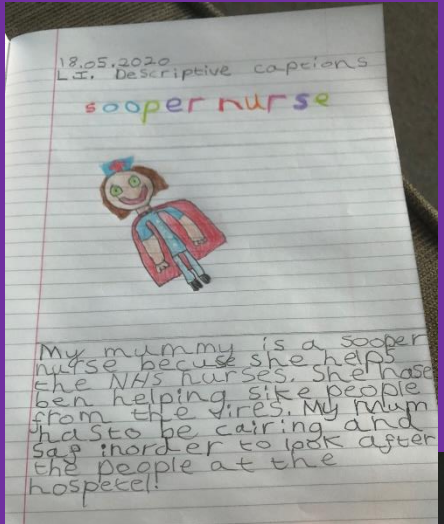 18.05.2020
L.I. Descriptive captions
sooper nurse
My mummy is a sooper
nurse becuse she helps
the NHS nurses. She hase
ben helping sike people
from the vires. My mum
hasto be cairing and
saf inorder to look after
the people at the
hospetel!